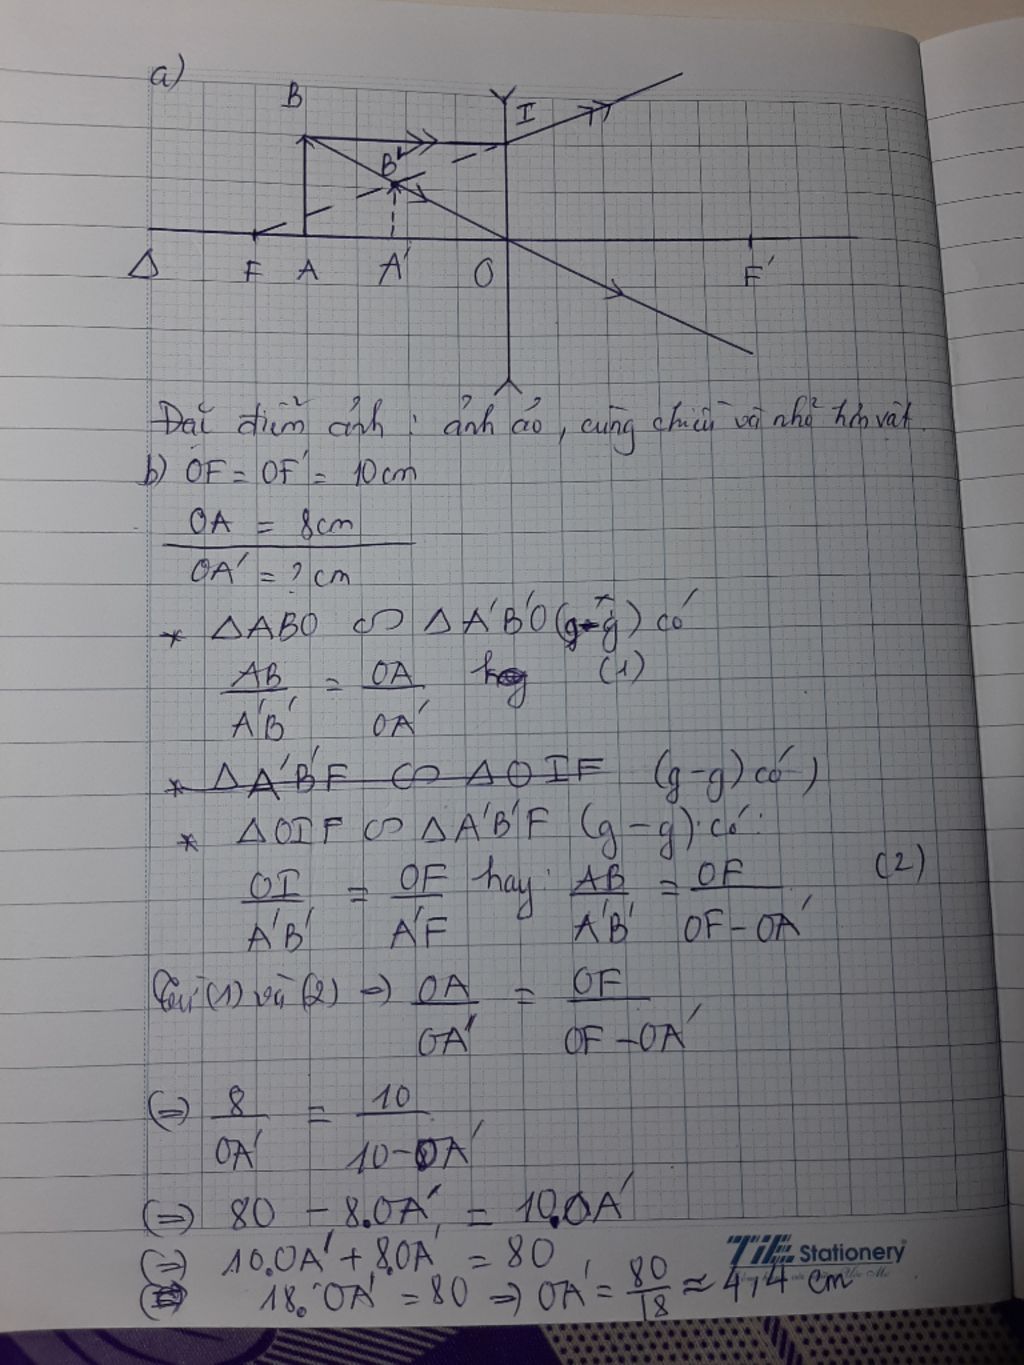 a)
B
I
B'
Δ F A A' O F'
Đặc điểm ảnh : ảnh ảo, cùng chiều và nhỏ hơn vật
b) OF = OF' = 10cm
OA = 8cm
OA' = ? cm
* ΔABO ∽ ΔA'B'O (g-g) có
AB/A'B' = OA/OA' (1)
* ΔA'B'F ∽ ΔOIF (g-g) có )
* ΔOIF ∽ ΔA'B'F (g-g) có:
OI/A'B' = OF/A'F hay: AB/A'B' = OF/OF-OA' (2)
Từ (1) và (2) => OA/OA' = OF/OF-OA'
(=) 8/OA' = 10/10-OA'
(=) 80 - 8.OA' = 10.OA'
(=) 10.OA' + 8.OA' = 80
18.OA' = 80 => OA' = 80/18 ≈ 4,4 cm
TiE Stationery